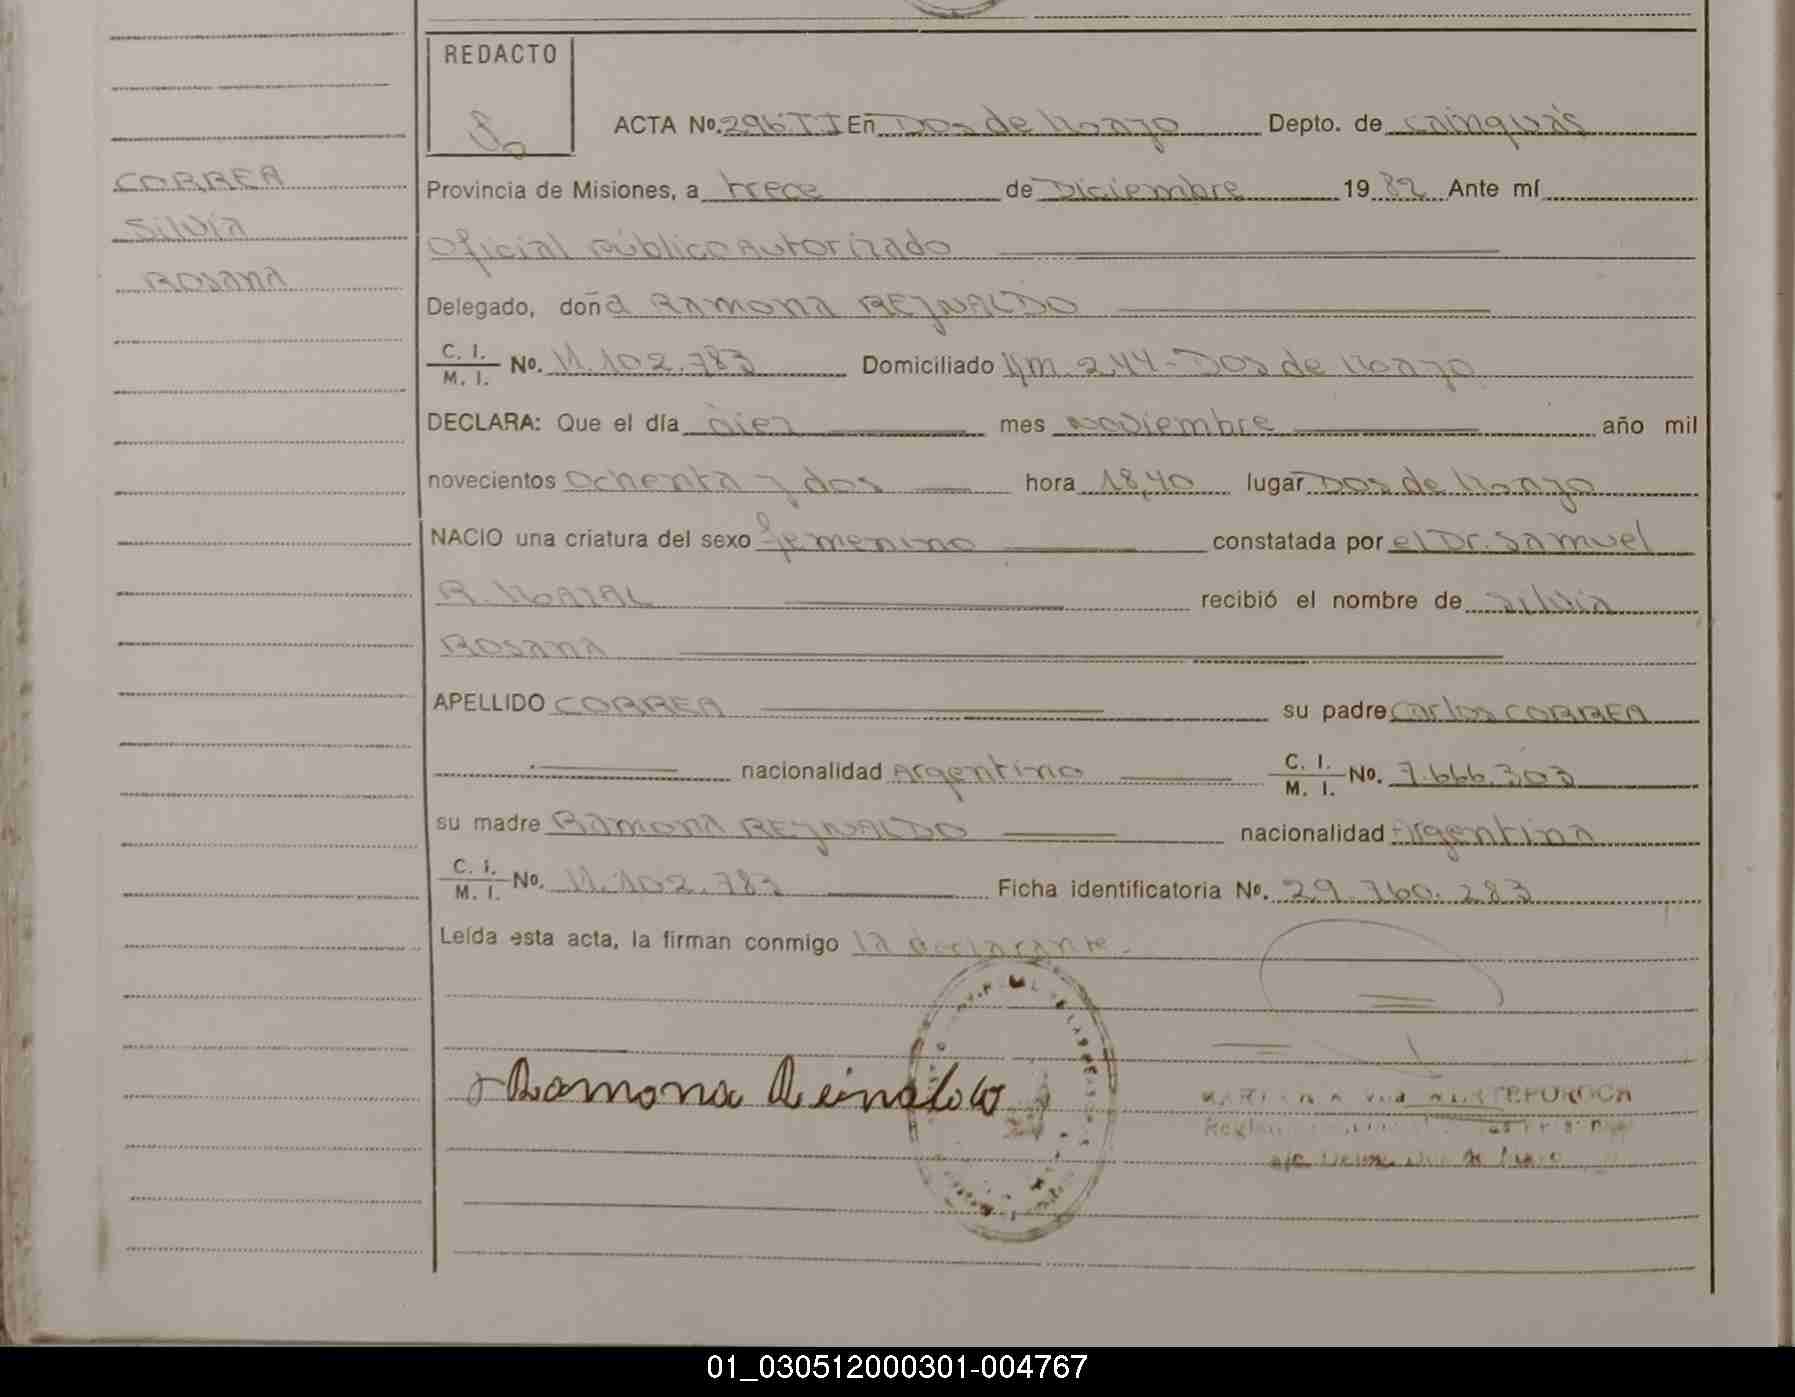 REDACTO
ACTA No. 296 TI En Dos de Mayo Depto. de Cainguás
CORREA
Silvia
ROSANA
Provincia de Misiones, a trece de Diciembre 19 82 Ante mí
Oficial Público Autorizado
Delegado, doña RAMONA REYNALDO
C. I.
M. I. No. 11.102.783 Domiciliado Km. 244 - Dos de Mayo
DECLARA: Que el día diez mes noviembre año mil
novecientos ochenta y dos hora 18,40 lugar Dos de Mayo
NACIO una criatura del sexo femenino constatada por el Dr. Samuel
R. recibió el nombre de Silvia
ROSANA
APELLIDO CORREA su padre Carlos CORREA
nacionalidad Argentino C. I.
M. I. No. 7.666.303
su madre RAMONA REYNALDO nacionalidad Argentina
C. I.
M. I. No. 11.102.783 Ficha identificatoria No. 29.760.283
Leída esta acta, la firman conmigo la declarante.-
Ramona Reinaldo